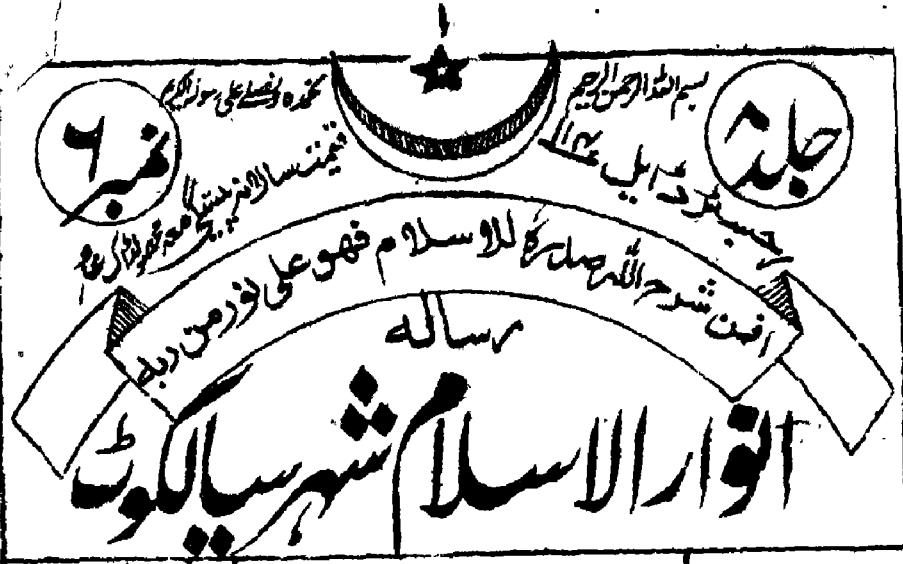 بسم اللہ الرحمن الرحیم
نحمدہ و نصلے علی رسولہ الکریم
جلد ۸
نمبر ۶
رجسٹرڈ ایل
قیمت سالانہ پیشگی معہ محصولڈاک
افمن شرح اللہ صدرہ للاسلام فھو علی نور من ربہ
رسالہ
انوار الاسلام شہر سیالکوٹ